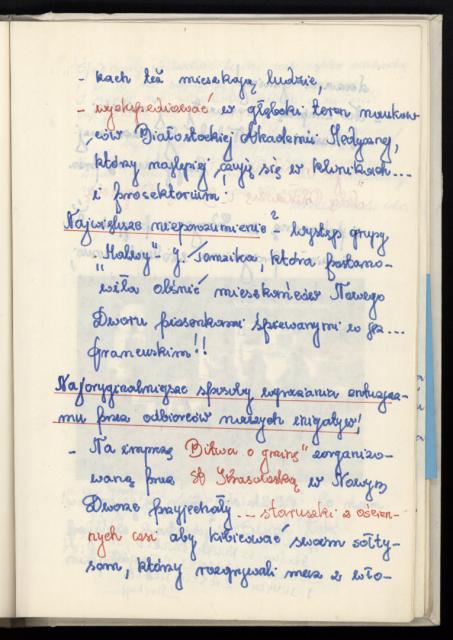 - kach też mieszkają ludzie,
- wyekspediować w głęboki teren naukow-
ców Białostockiej Akademii Medycznej,
którzy najlepiej czują się w klinikach...
i prosektorium.
Największe nieporozumienie? - występ grupy
"Malwy" J. Tomaika, która postano-
wiła olśnić mieszkańców Nowego
Dworu piosenkami śpiewanymi w jęz...
francuskim!!
Najoryginalniejsze sposoby wyrażania entuzjaz-
mu przez odbiorców naszych inicjatyw!
- Na imprezę "Bitwa o gminę" zorganizo-
waną przez w Nowym
Dworze przyjechały ... staruszki z ościen-
nych wsi aby kibicować swoim sołty-
som, którzy rozgrywali mecz z wło-